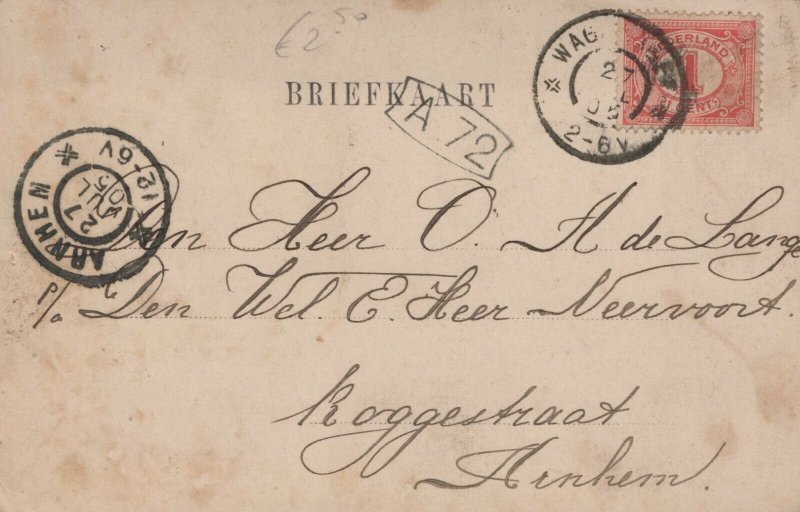 €2.50
BRIEFKAART
A 72
WAG
27
2-6V
NEDERLAND
1
CENT
ARNHEM
12-6V
27 JUL
05
Den Heer O. A de Lange
p/a Den Wel. E. Heer Neervoort.
Roggestraat
Arnhem.